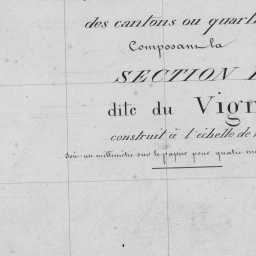 des cantons ou quart
Composant la
SECTION
dite du Vign
construit à l'échelle de
Soit un millimètre sur le papier pour quatre m